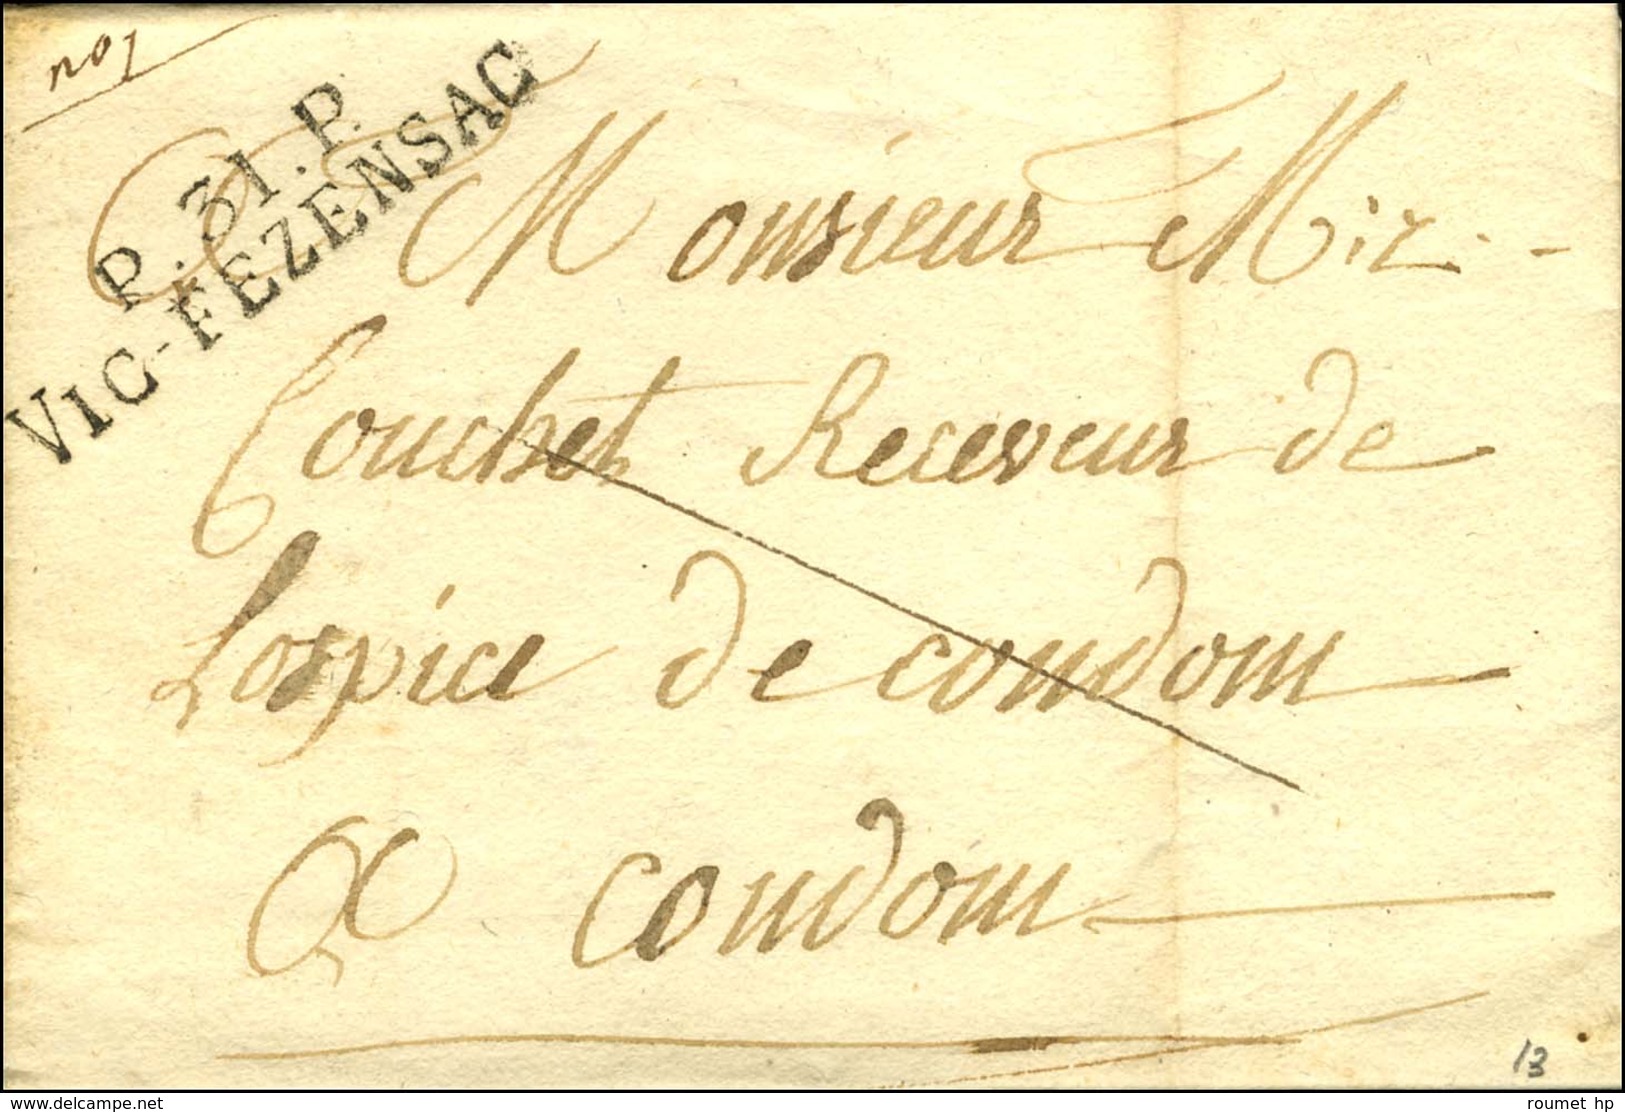 no 1
P. 31. P.
VIC-FEZENSAC
A Monsieur Miz-
Couchet Receveur de
Lospice de condom
A Condom
13
www.delcampe.net
roumet hp